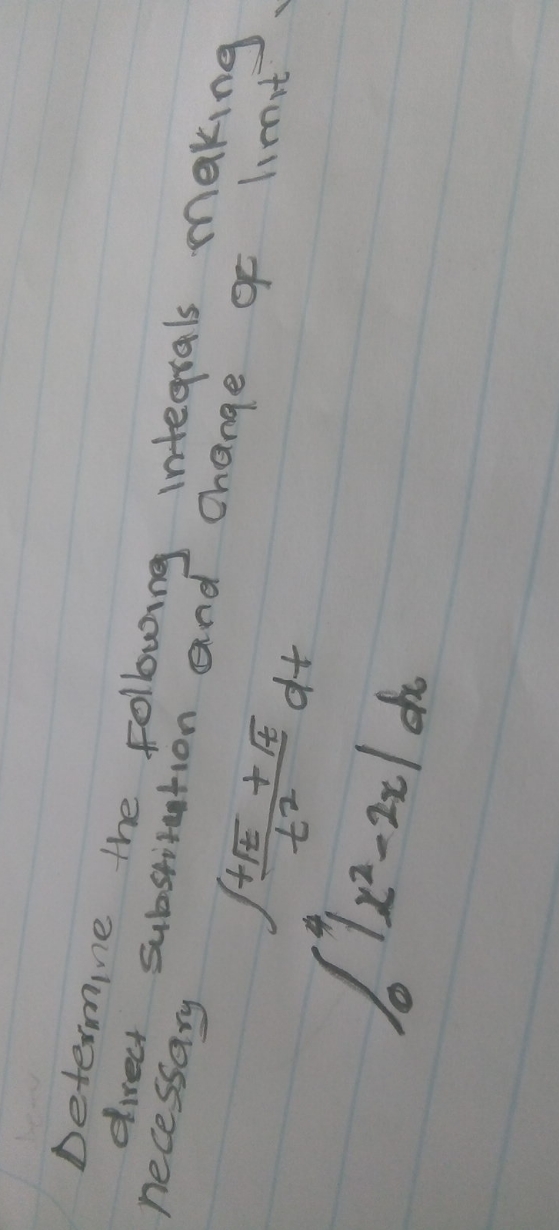 Determine the following integrals making
direct substitution and change of limit
necessary
∫ t√t + √t / t² dt
∫₀⁴ |x² - 2x| dx